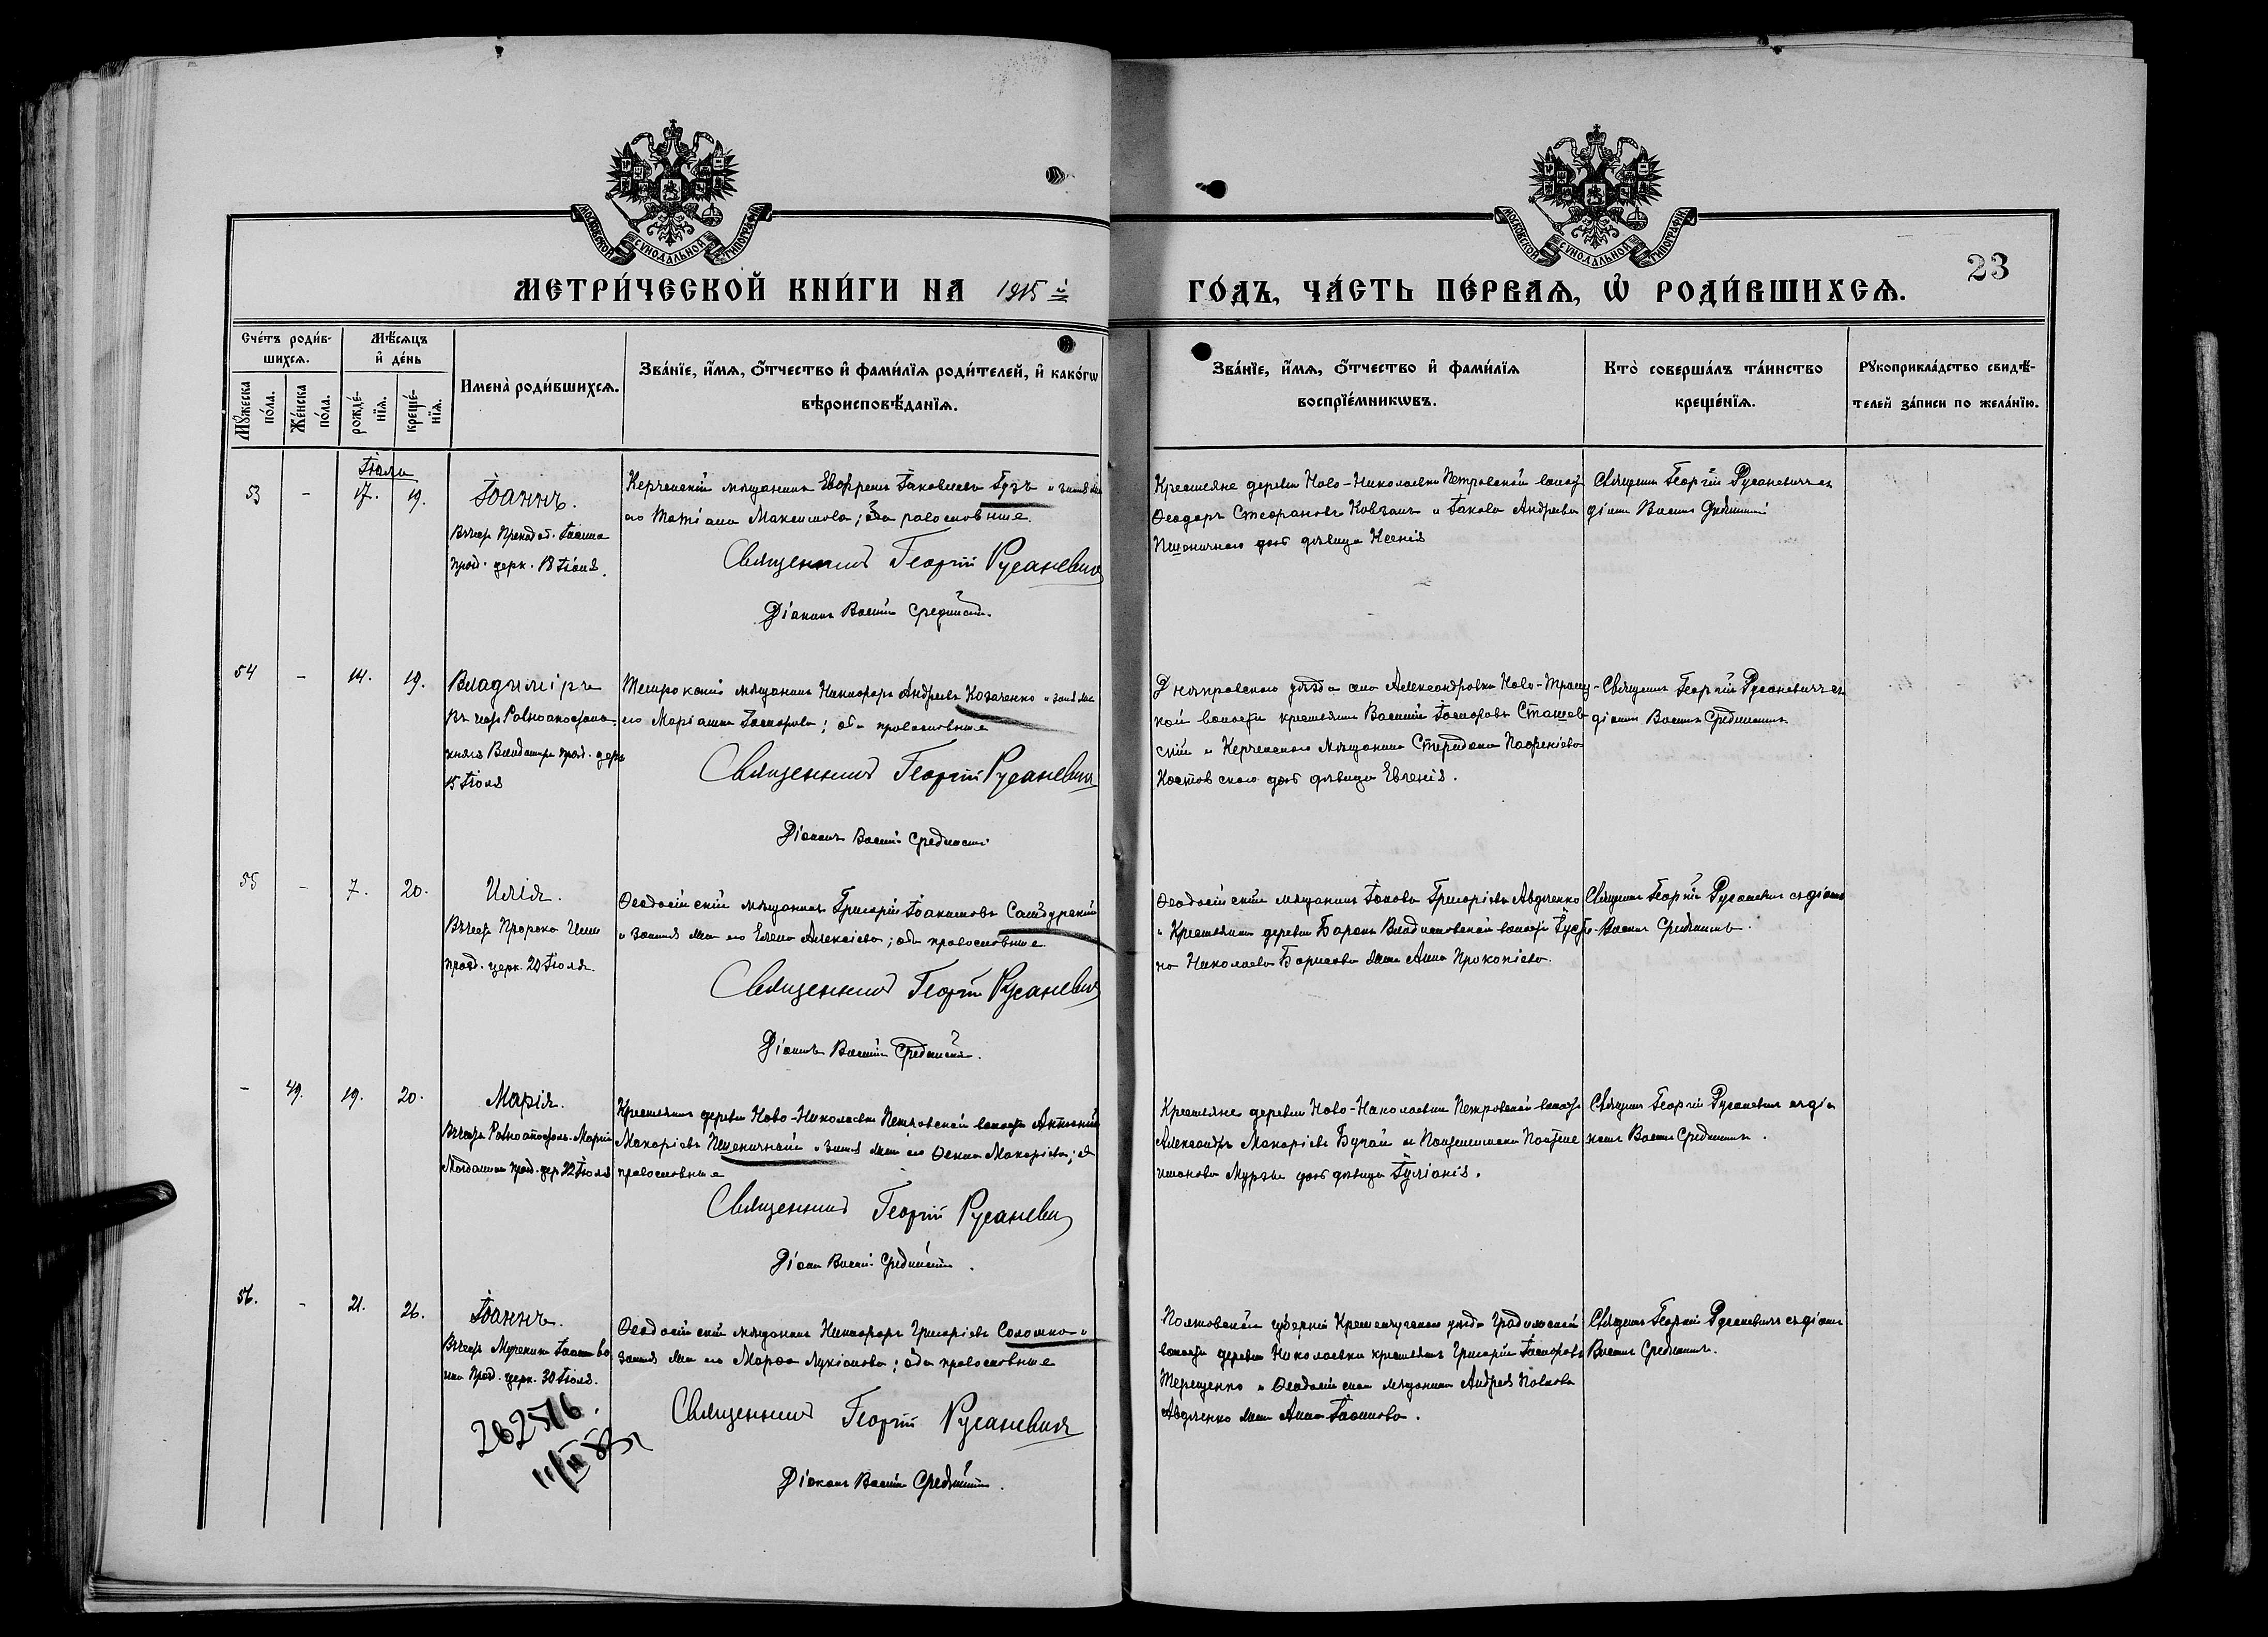 МОСКОВСКОЙ СѴНОДАЛЬНОЙ ТИПОГРАФІИ
МОСКОВСКОЙ СѴНОДАЛЬНОЙ ТИПОГРАФІИ
23
МЕТРИ́ЧЕСКОЙ КНИ́ГИ НА 1915 й
ГО́ДЪ, ЧА́СТЬ ПЕ́РВАѦ, Ѽ РОДИ́ВШИХСѦ.
Сче́тъ роди́в-
шихсѧ.
Мꙋ́жеска по́ла.
Же́нска по́ла.
Мѣ́сѧцъ
и҆ де́нь
рожде́-
нїѧ.
креще́-
нїѧ.
И҆мена̀ роди́вшихсѧ.
Зва́нїе, и҆́мѧ, ѻ҆́тчество и҆ фами́лїѧ роди́телей, и҆ како́гѡ
вѣроисповѣ́данїѧ.
Зва́нїе, и҆́мѧ, ѻ҆́тчество и҆ фами́лїѧ
воспрїе́мникѡвъ.
Кто̀ соверша́лъ та́инство
креще́нїѧ.
Рꙋкоприкла́дство свидѣ́-
телей за́писи по жела́нїю.
Іюля
53 - 17. 19. Іоаннъ.
Въ честь Преподоб. Іоанна
празд. церк. 18 Іюля.
Керченскій мѣщанинъ Евфремъ Іаковлевъ Гузъ и законная жена
его Татіана Максимова; оба православные.
Священникъ Георгій Русаневичъ
Діаконъ Василій Срединскій.
Крестьяне деревни Ново-Николаевки Петровской волости
Ѳеодоръ Стефановъ Ковганъ и Іакова Андреева
Пшеничнаго дочь дѣвица Ксенія
Священникъ Георгій Русаневичъ съ
діакон. Василіемъ Срединскимъ
54 - 14. 19. Владиміръ
Въ честь Равноапостола
князя Владиміра празд. церк
15 Іюля
мѣщанинъ Никифоръ Андреевъ Козаченко и законная жена
его Маріанна; оба православные
Священникъ Георгій Русаневичъ
Діаконъ Василій Срединскій
Днѣпровскаго уѣзда села Александровки Ново-Троиц-
кой волости крестьянинъ Василій Сташев-
скій и Керченскаго мѣщанина Спиридона Парѳеніева
Костовскаго дочь дѣвица Евгенія.
Священникъ Георгій Русаневичъ съ
діакон. Василіемъ Срединскимъ
55 - 7. 20. Илія.
Въ честь Пророка Иліи
празд. церк. 20 Іюля.
Ѳеодосійскій мѣщанинъ Григорій Іоакимовъ
и законная жена его Елена Алексіева; оба православные
Священникъ Георгій Русаневичъ
Діаконъ Василій Срединскій.
Ѳеодосійскій мѣщанинъ Іаковъ Григоріевъ Авдѣенко
и Крестьянина деревни Баронъ Владиславовской волости Іусти-
на Николаева Борисова жена Анна Прокопіева.
Священникъ Георгій Русаневичъ съ діакономъ
Василіемъ Срединскимъ.
- 49. 19. 20. Марія.
Въ честь Равноапостол. Маріи
Магдалины празд. цер. 22 Іюля
Крестьянинъ деревни Ново-Николаевки Петровской волости Антоній
Макаріевъ Пшеничный и законная жена его Ѳекла Макаріева; оба
православные
Священникъ Георгій Русаневичъ
Діаконъ Василій Срединскій.
Крестьяне деревни Ново-Николаевки Петровской волости
Александръ Макаріевъ Бугай и Пантелеимона Пантеле
имонова Мурзы дочь дѣвица Іуліанія.
Священникъ Георгій Русаневичъ съ діа
кономъ Василіемъ Срединскимъ.
56. - 21. 26. Іоаннъ.
Въ честь Мученика Іоанна во
ина празд. церк. 30 Іюля.
262516.
Ѳеодосійскій мѣщанинъ Никифоръ Григоріевъ Соломко и
законная жена его Марѳа Лукіанова; оба православные
Священникъ Георгій Русаневичъ
Діаконъ Василій Срединскій.
Полтавской губерніи Кременчугскаго уѣзда Градижской
волости деревни Николаевки крестьянинъ Григорій
Терещенко и Ѳеодосійскаго мѣщанина Андрея Павлова
Авдѣенко жена Анна.
Священникъ Георгій Русаневичъ съ діакон
Василіемъ Срединскимъ.